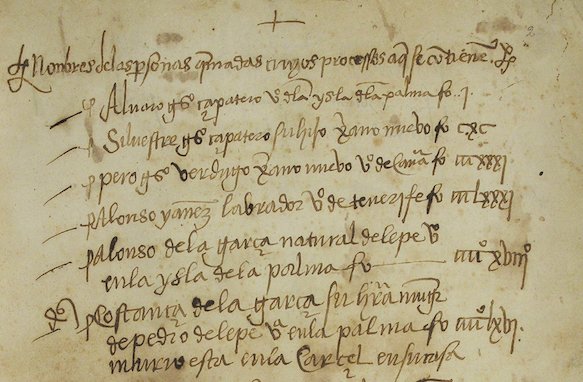 Nonbres de las psonas qmadas cuyos processos aqi se contiene
Alvaro gs çapatero vo dla ysla dla palma fo. i
Silvestre gs çapatero su hijo xano nuevo fo cxc
pero gs verdugo xano nuevo vo de Canaria fo iiiixxxi
Alonso yanez labrador vo de tenerife fo iiiilxxxi
Alonso de la garça natural de lepe vo
en la ysla de la palma fo iiiiº xviiiº
Costança de la garça su hra muger
de pedro de lepe vº en la palma fo iiiiiº lxvi.
murio esta en la Carcel en su casa